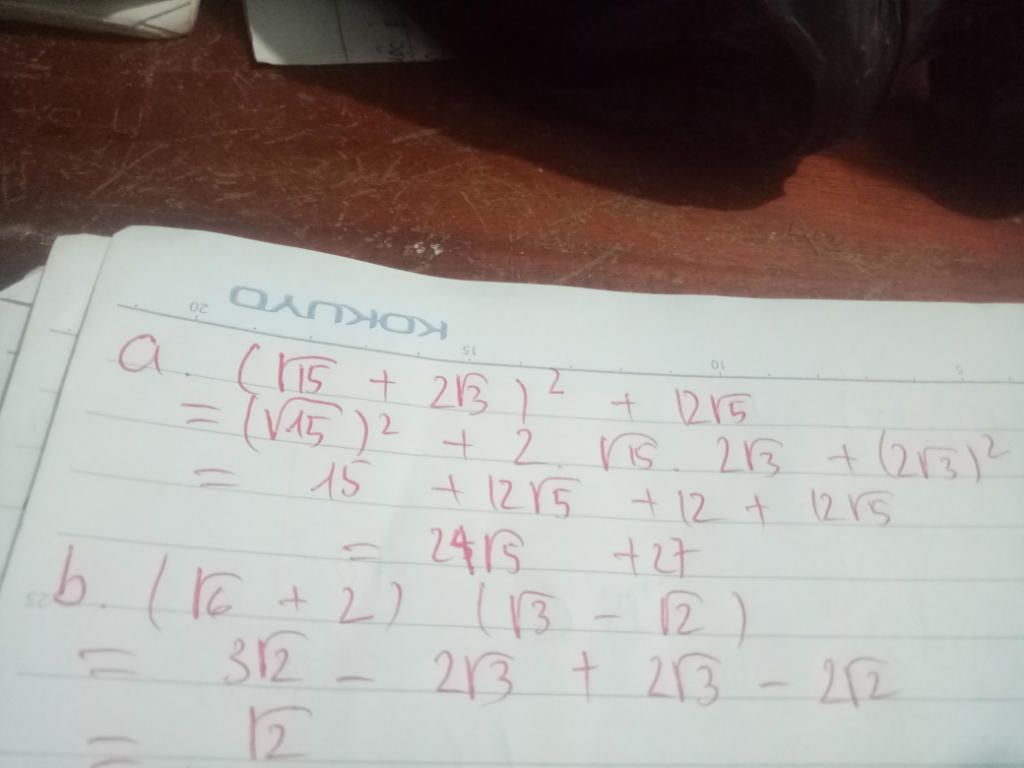 KOKUYO
20 15 10 5
a. (√15 + 2√3)² + 12√5
= (√15)² + 2. √15. 2√3 + (2√3)²
= 15 + 12√5 + 12 + 12√5
= 24√5 + 27
25
b. (√6 + 2) (√3 - √2)
= 3√2 - 2√3 + 2√3 - 2√2
= √2